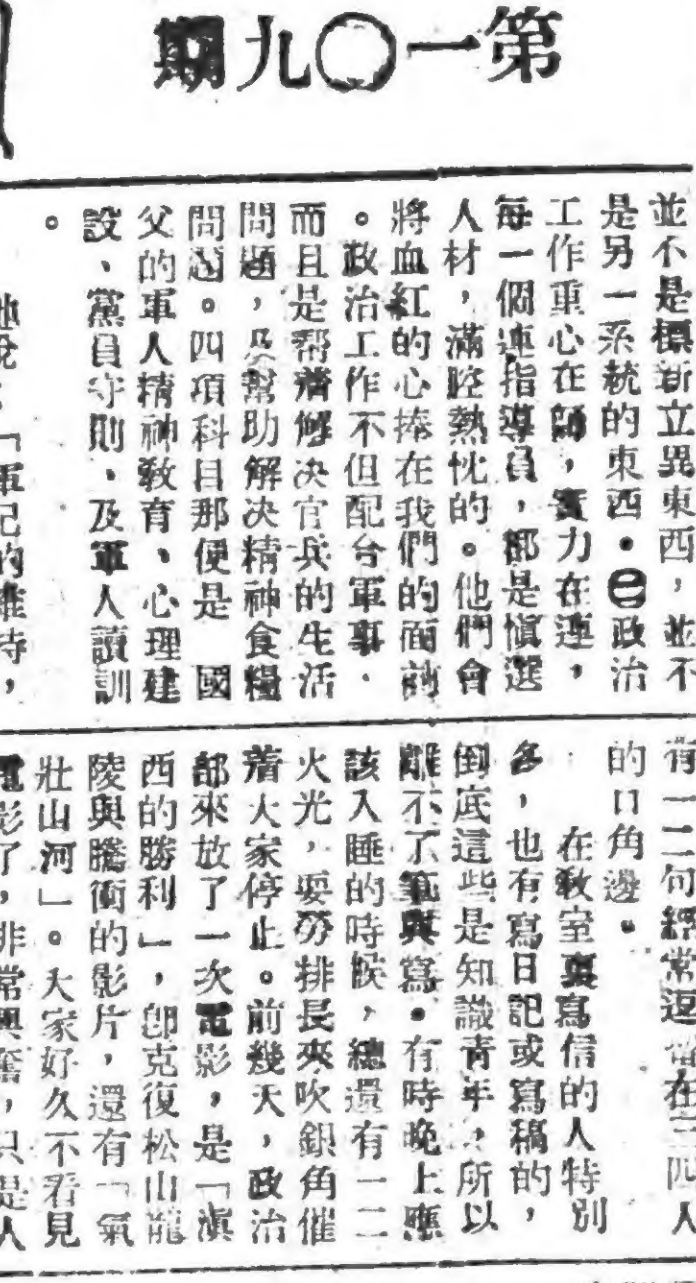 第一〇九期
並不是標新立異東西，並不
是另一系統的東西。㊁政治
工作重心在師，實力在連，
每一個連指導員，都是慎選
人材，滿腔熱忱的。他們會
將血紅的心捧在我們的面前
。政治工作不但配合軍事，
而且是帮着解决官兵的生活
問題，及幫助解决精神食糧
問題。四項科目那便是 國
父的軍人精神敎育、心理建
設、黨員守則、及軍人讀訓
。
他說：「軍紀的維持，
有一二句經常返 在三四人
的口角邊。
在敎室裏寫信的人特別
多，也有寫日記或寫稿的，
倒底這些是知識青年，所以
離不了筆與寫。有時晚上應
該入睡的時候，總還有一二
火光，要勞排長來吹銀角催
着大家停止。前幾天，政治
部來放了一次電影，是「滇
西的勝利」，卽克復松山龍
陵與騰衝的影片，還有「氣
壯山河」。大家好久不看見
電影了，非常興奮，只是人